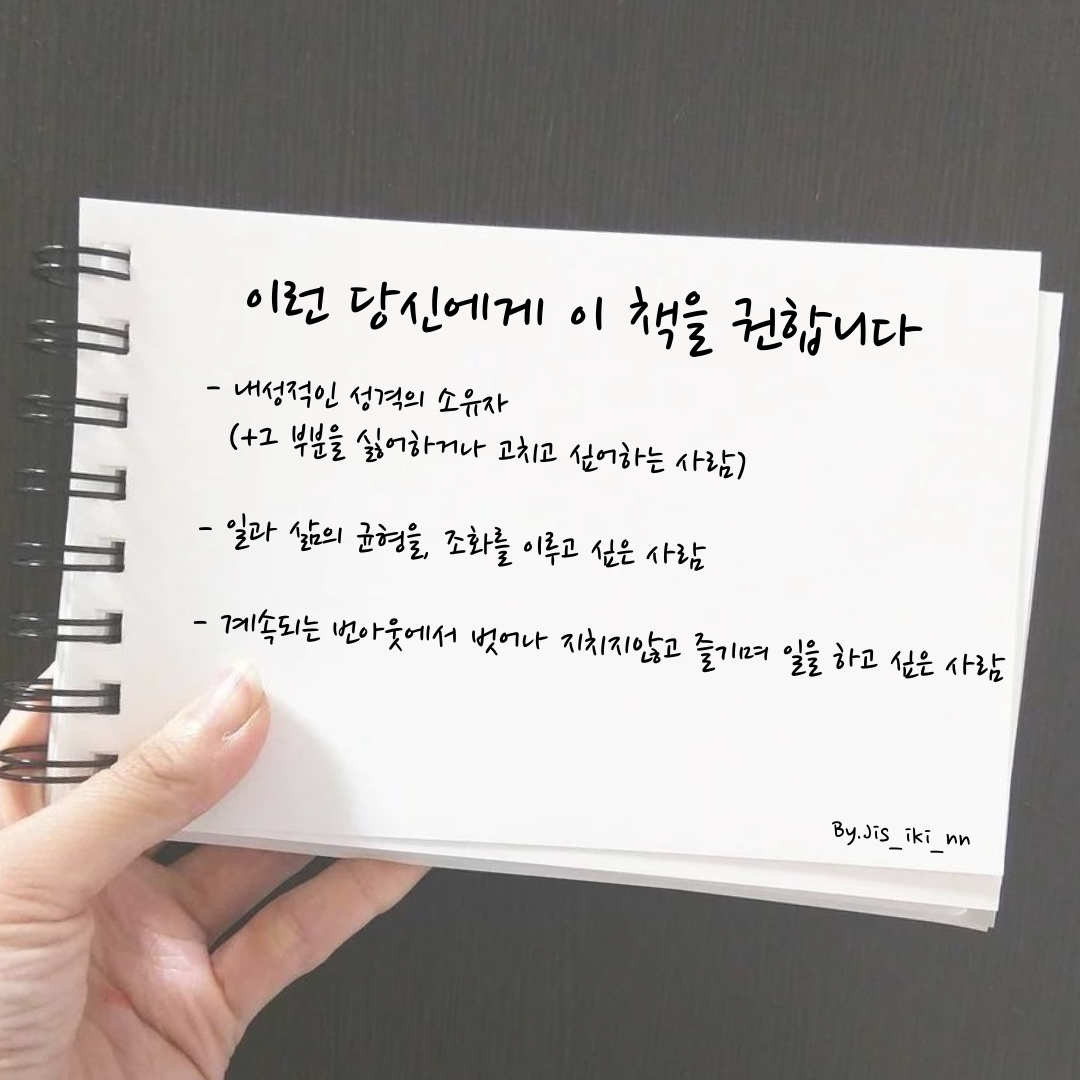 이런 당신에게 이 책을 권합니다
- 내성적인 성격의 소유자
(+그 부분을 싫어하거나 고치고 싶어하는 사람)
- 일과 삶의 균형을, 조화를 이루고 싶은 사람
- 계속되는 번아웃에서 벗어나 지치지않고 즐기며 일을 하고 싶은 사람
By.Jis_iki_nn